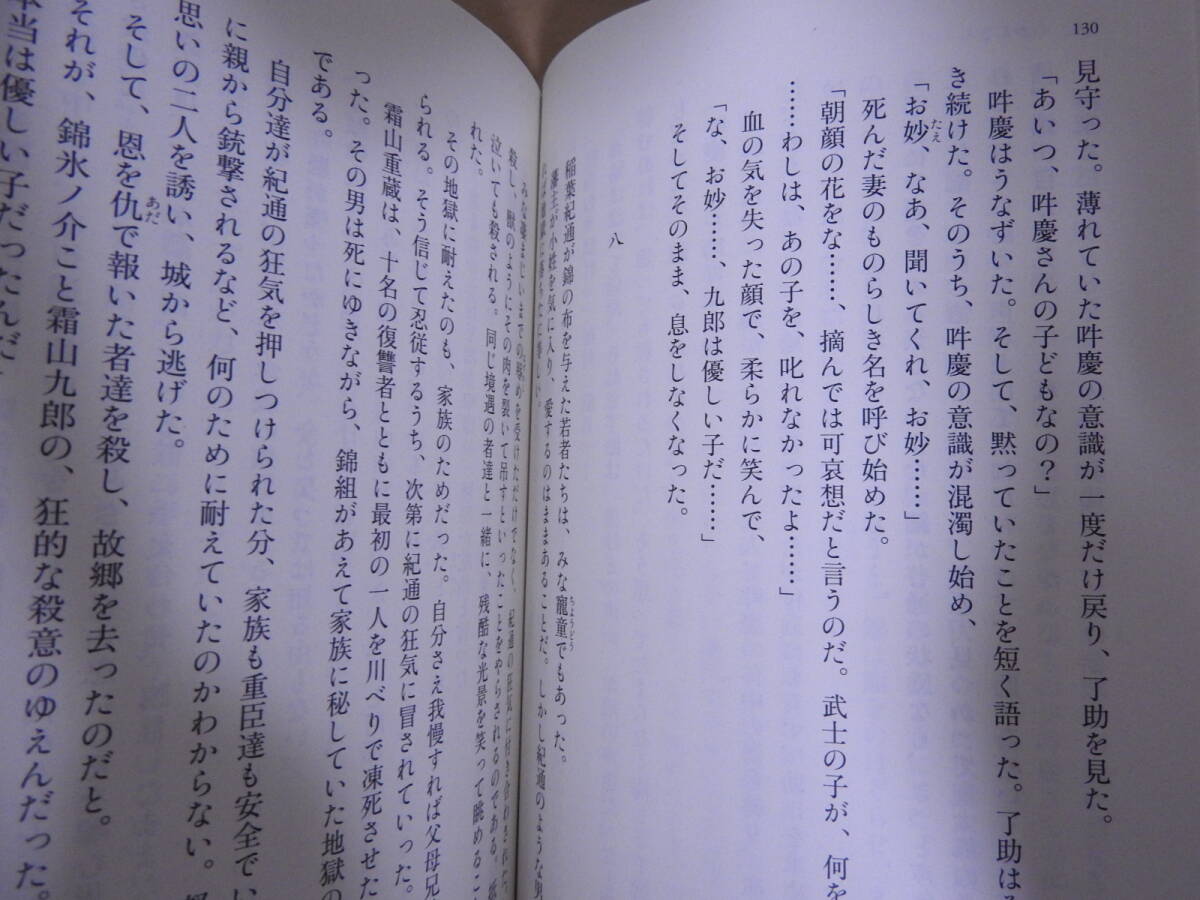 130
見守った。薄れていた吽慶の意識が一度だけ戻り、了助を見た。
「あいつ、吽慶さんの子どもなの?」
吽慶はうなずいた。そして、黙っていたことを短く語った。了助は
き続けた。そのうち、吽慶の意識が混濁し始め、
「お妙、なあ、聞いてくれ、お妙……」
たえ
死んだ妻のものらしき名を呼び始めた。
「朝顔の花をな……、摘んでは可哀想だと言うのだ。武士の子が、何を
……わしは、あの子を、叱れなかったよ……」
血の気を失った顔で、柔らかに笑んで、
「な、お妙……、九郎は優しい子だ……」
そしてそのまま、息をしなくなった。
八
稲葉紀通が錦の布を与えた若者たちは、みな寵童でもあった。
ちょうどう
藩主が小姓を気に入り、愛するのはままあることだ。しかし紀通のような男
殺し、獣のようにその肉を裂いて吊すといったことをやらされるのである。
泣いても殺される。同じ境遇の者達と一緒に、残酷な光景を笑って眺めるこ
れた。
その地獄に耐えたのも、家族のためだった。自分さえ我慢すれば父母兄
られる。そう信じて忍従するうち、次第に紀通の狂気に冒されていった。
霜山重蔵は、十名の復讐者とともに最初の一人を川べりで凍死させた
った。その男は死にゆきながら、錦組があえて家族に秘していた地獄の
である。
自分達が紀通の狂気を押しつけられた分、家族も重臣達も安全でい
に親から銃撃されるなど、何のために耐えていたのかわからない。
思いの二人を誘い、城から逃げた。
そして、恩を仇で報いた者達を殺し、故郷を去ったのだと。
あだ
それが、錦氷ノ介こと霜山九郎の、狂的な殺意のゆえんだった。
本当は優しい子だったんだ